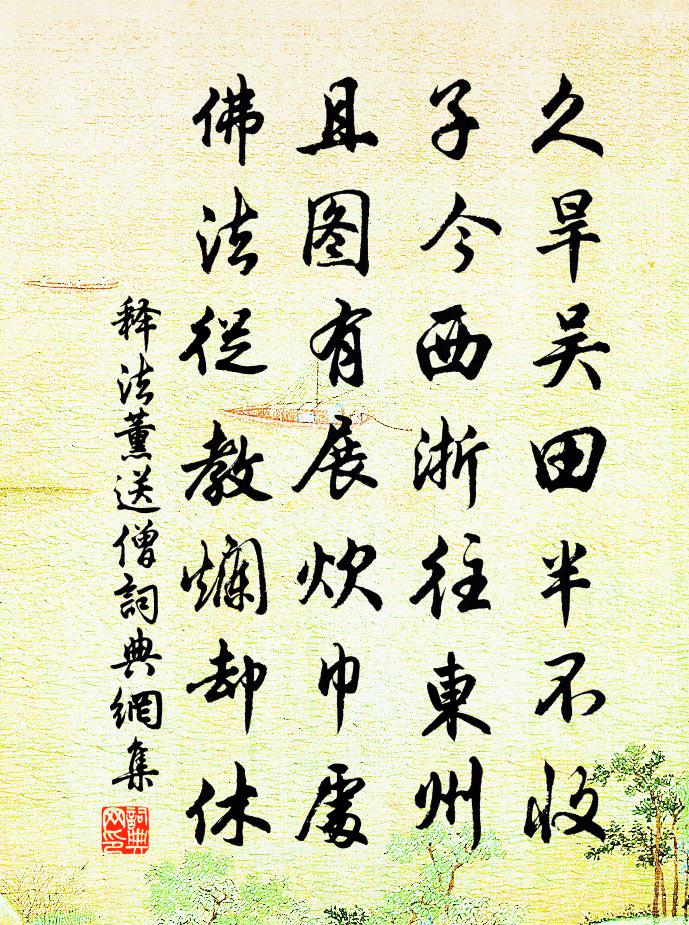 久旱吴田半不收
子今西浙往東州
且图有展炊巾處
佛法從教爛却休
释法薰送僧詞典網集
詞典网印